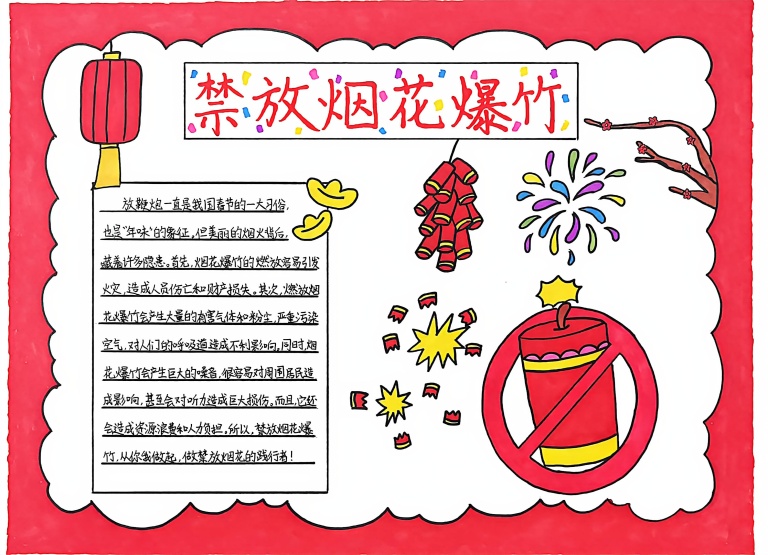 禁放烟花爆竹
放鞭炮一直是我国春节的一大习俗,
也是“年味”的象征。但美丽的烟火背后,
藏着许多隐患。首先,烟花爆竹的燃放容易引发
火灾,造成人员伤亡和财产损失。其次,燃放烟
花爆竹会产生大量的有害气体和粉尘,严重污染
空气,对人们的呼吸道造成不利影响。同时,烟
花爆竹会产生巨大的噪音,很容易对周围居民造
成影响,甚至会对听力造成巨大损伤。而且,它还
会造成资源浪费和人力负担。所以,禁放烟花爆
竹,从你我做起,做禁放烟花的践行者!